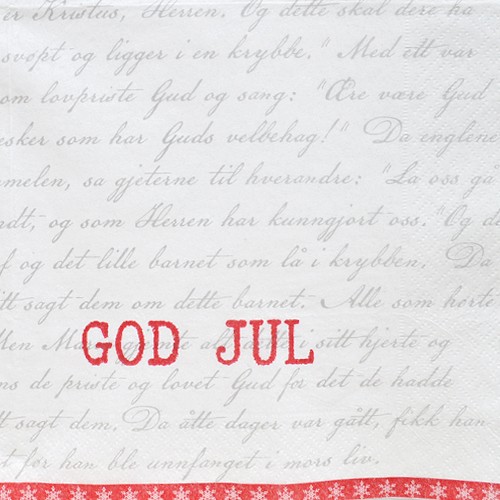 er Kristus, Herren. Og dette skal dere ha
svøpt og ligger i en krybbe." Med ett var
om lovpriste Gud og sang: "Ære være Gud
esker som har Guds velbehag!" Da englene
mmelen, sa gjeterne til hverandre: "La oss ga
ndt, og som Herren har kunngjort oss." Og de
f og det lille barnet som lå i krybben. Da
itt sagt dem om dette barnet. Alle som hørte
GOD JUL
Men Mar gjemte alt dette i sitt hjerte og
ns de priste og lovet Gud for det de hadde
t sagt dem. Da åtte dager var gått, fikk han
t før han ble unnfanget i mors liv.